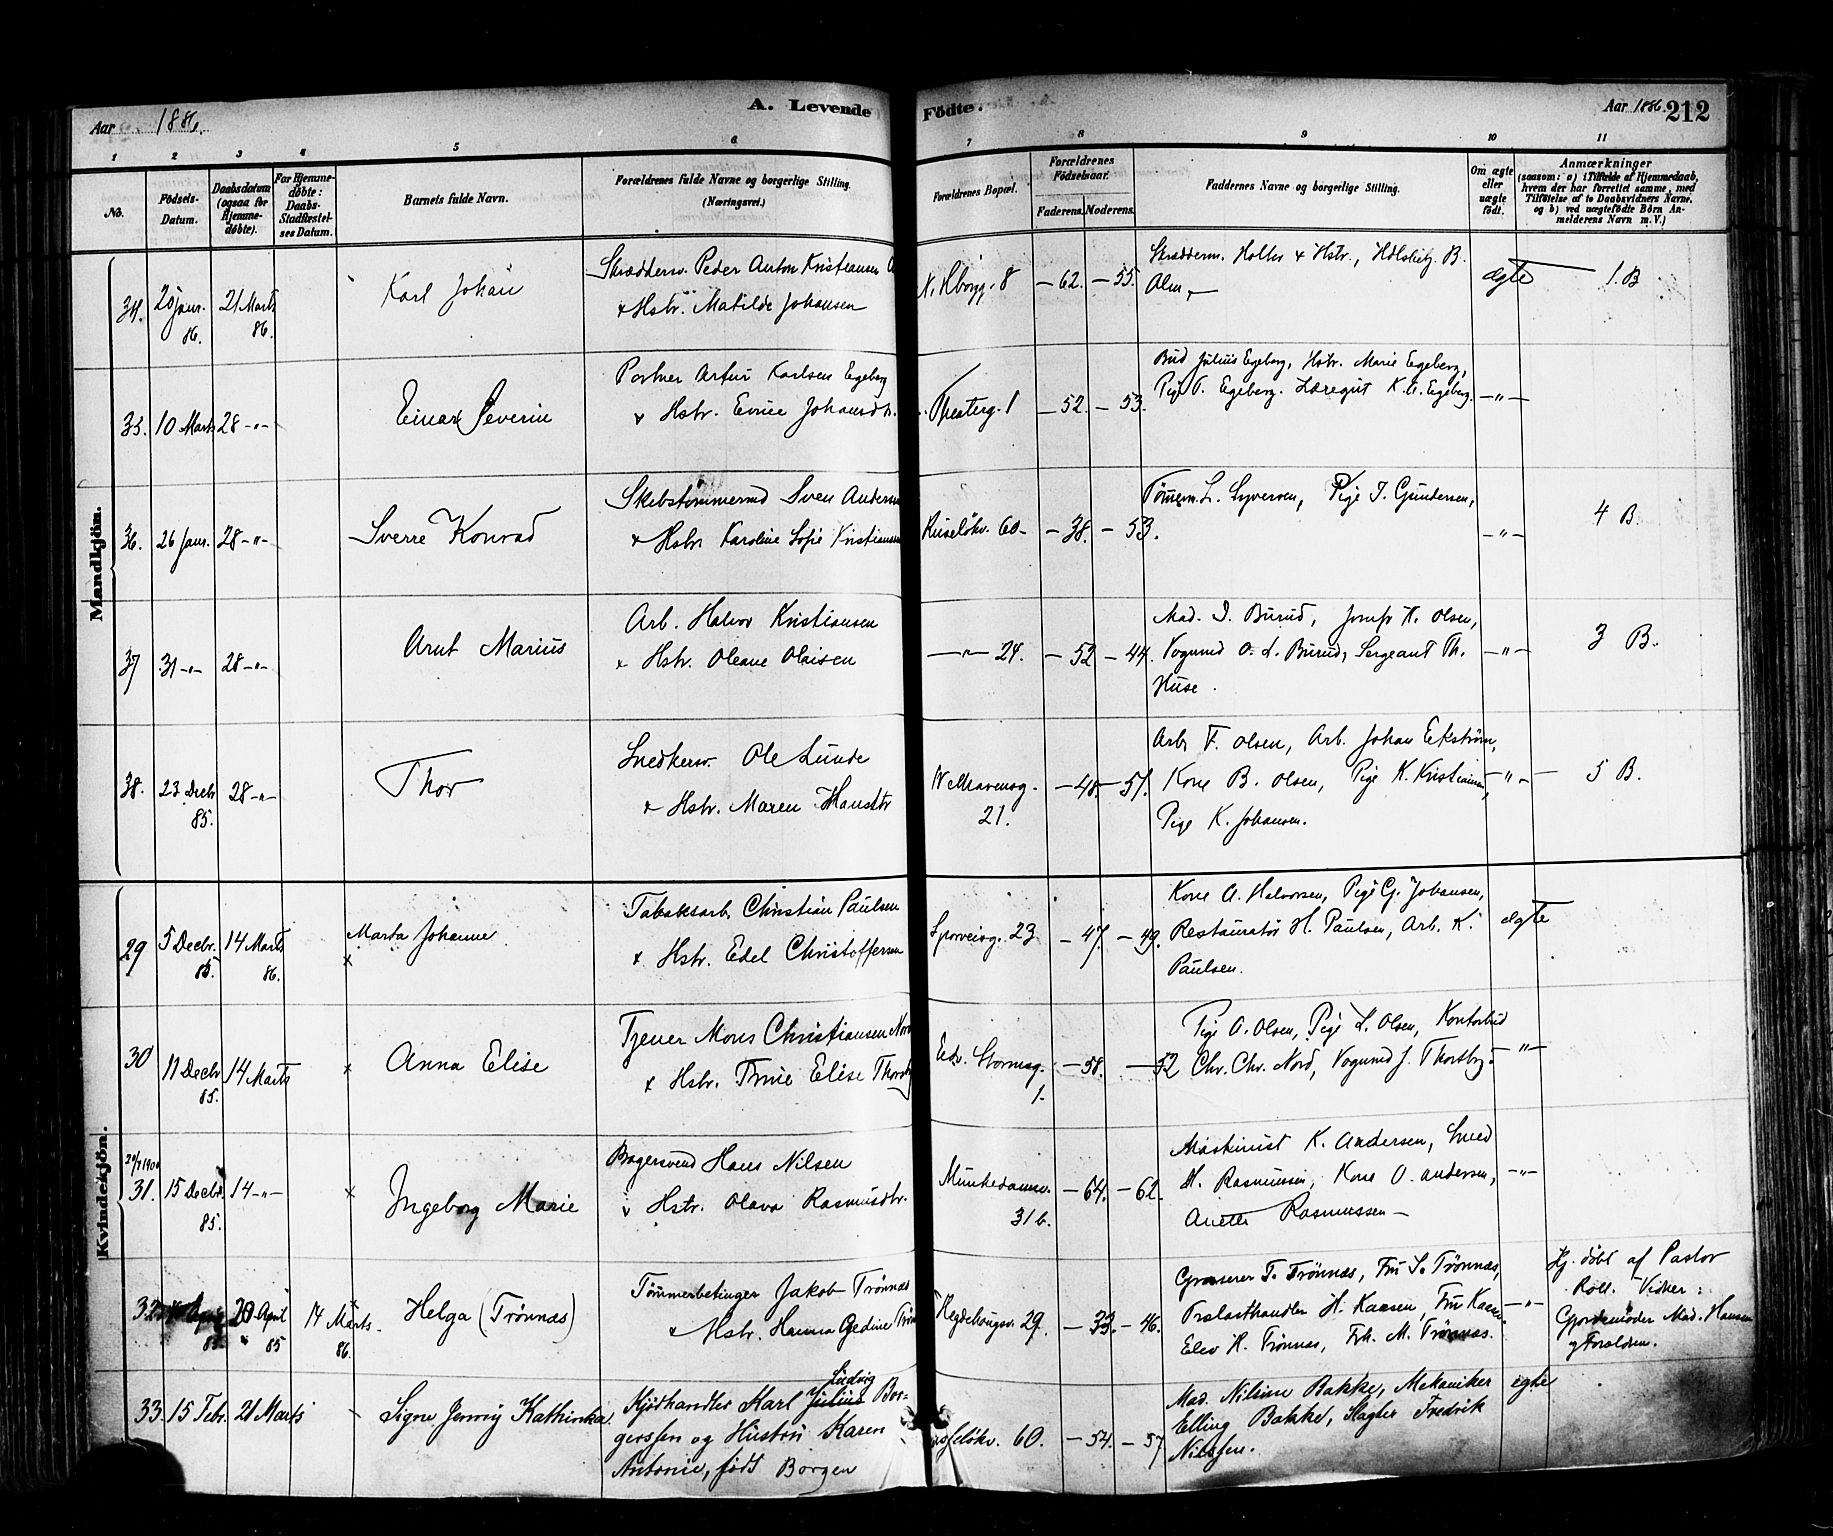 Aar 1886.
A. Levende
Födte.
Aar 1886. 212
1 2 3 4 5 6 7 8 9 10 11
No.
Födsels-
Datum.
Daabsdatum
(ogsaa for
Hjemme-
döbte).
For Hjemme-
døbte:
Daabs-
Stadfæstel-
ses Datum.
Barnets fulde Navn.
Forældrenes fulde Navne og borgerlige Stilling.
(Næringsvei.)
Forældrenes Bopæl.
Forældrenes
Födselsaar.
Faderens. Moderens.
Faddernes Navne og borgerlig Stilling.
Om ægte
eller
uægte
födt.
Anmærkninger
(saasom: a) i Tilfælde af Hjemmedaab,
hvem der har forrettet samme, med
Tilföielse af to Daabsvidners Navne,
og b) ved uægtefödte Börn An-
melderens Navn m. V.)
Mandkjön.
34. 20 Janr. 86. 21 Marts 86.
Karl Johan
Skræddersv. Peder Anton Kristiansen
& Hstr. Matilde Johansen
8 – 62. – 55.
Skrædderm. Holter & Hstr., B.
Alm
ægte 1. B
35. 10 Marts 28 –"–
Einar Severin
Portner Artur Karlsen Egeberg
& Hstr. Johansdtr.
Theaterg. 1 – 52. – 53.
Bud Julius Egeberg, Hstr. Marie Egeberg,
Pige T. Egeberg. Læregut K. E. Egeberg. –"–
36. 26 Janr. 28 –"–
Sverre Konrad
Skibstømmermd Sven Andersen
& Hstr. Karoline Sofie Kristiansen
Ruseløkv. 60 – 38. – 53.
Tømrm. L. Syversen, Pige J. Gundersen,
–"– 4 B.
37 31 –"– 28 –"–
Arnt Marius
Arb. Halvor Kristiansen
& Hstr. Oleane Olaisen
–"– 24. – 52 – 44.
Mad. I. Burud, Jomfr K. Olsen,
Vognmd O. L. Burud, Sergeant Th.
Huse.
–"– 3 B.
38. 23 Decbr 85. 28 –"–
Thor
Snedkersv. Ole Lunde
& Hstr. Maren Hansdtr
Welhavensg. 21. – 48. – 51.
Arb. F. Olsen, Arb. Johan Eckstrøm,
Kone B. Olsen, Pige K. Kristiansen,
Pige K. Johansen.
–"– 5 B.
Kvindekjön.
29 5 Decbr. 85. 14 Marts 86.
Marta Johanne
×
Tobaksarb. Christian Paulsen
& Hstr. Edel Christoffersen
Sporveisg. 23 – 47. – 49.
Kone A. Halvorsen, Pige G. Johansen,
Restauratør H. Paulsen, Arb. K.
Paulsen.
ægte
30 11 Decbr 85. 14 Marts
× Anna Elise
Tjener Mons Christiansen Nord
& Hstr. Trine Elise Thorsby
Edv. Stormsg. 1. – 58. – 52
Pige A. Olsen, Pige L. Olsen, Kontorbud
Chr. Chr. Nord, Vognmd J. Thorsby. –"–
31. 15 Decbr 85. 14 –"–
× Ingeborg Marie
Bagersvend Hans Nilsen
& Hstr. Olava Rasmusdtr.
Munkedamsv. 31 b. – 64. – 62.
Maskinist K. Andersen, Smed
H. Rasmussen, Kone O. Andersen,
Anette Rasmussen –
–"–
32. 20 April 85 14 Marts 86.
× Helga (Trønnæs)
Tømmerbetinger Jakob Trønnæs
& Hstr. Hanna Gedine
Hegdehougsv. 29. – 33. – 46.
Grosserer T. Trønnæs, Fru S. Trønnæs,
Trælasthandler H. Kaesen, Fru Kaesen
Elev H. Trønnæs, Frk. M. Trønnæs.
–"–
Hj. døbt af Pastor
Roll. Vidner:
Gjordemoder Mad. Hansen
og Forældren.
33. 15 Febr. 21 Marts
Signe Jenny Kathinka
Ludvig
Kjødhandler Karl Julius Bor-
gersen og Hustru Karen
Antonie, født Borgen
60. – 54. – 57
Mad. Nilsine Bakke, Mekaniker
Elling Bakke, Slagter Fredrik
Nielsen.
egte